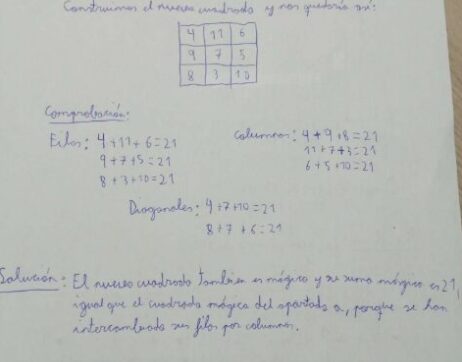 Construimos el nuevo cuadrado y nos quedaría así:
4 11 6
9 7 5
8 3 10
Comprobación:
Filas: 4+11+6=21
9+7+5=21
8+3+10=21
Columnas: 4+9+8=21
11+7+3=21
6+5+10=21
Diagonales: 4+7+10=21
8+7+6=21
Solución: El nuevo cuadrado también es mágico y su suma mágica es 21,
igual que el cuadrado mágico del apartado a, porque se han
intercambiado sus filas por columnas.